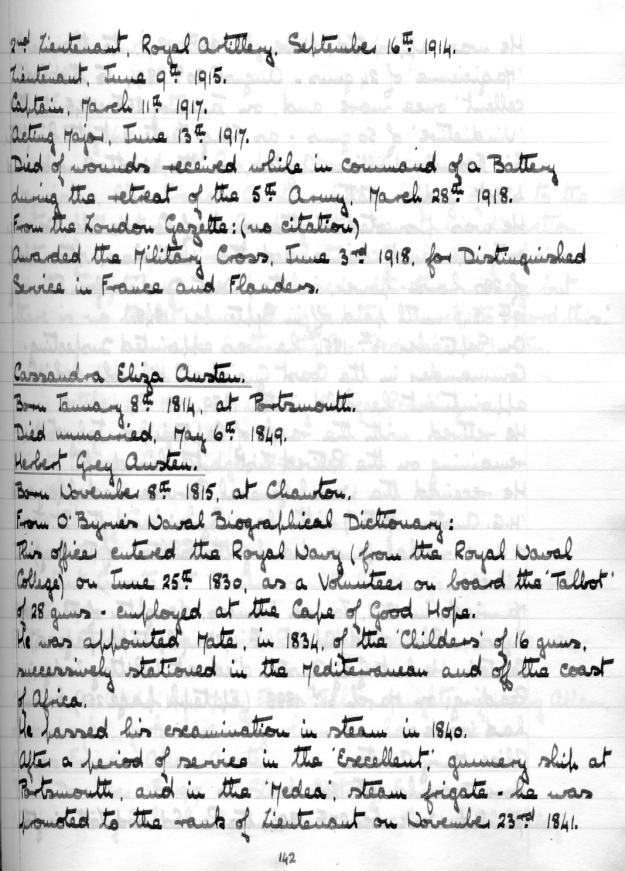 2nd Lieutenant, Royal Artillery, September 16th 1914.
Lieutenant, June 9th 1915.
Captain, March 11th 1917.
Acting Major, June 13th 1917.
Died of wounds received while in command of a Battery
during the retreat of the 5th Army, March 28th 1918.
From the London Gazette: (no citation)
Awarded the Military Cross, June 3rd 1918, for Distinguished
Service in France and Flanders.
Cassandra Eliza Austen.
Born January 8th 1814, at Portsmouth.
Died unmarried, May 6th 1849.
Herbert Grey Austen.
Born November 8th 1815, at Chawton.
From O'Byrnes Naval Biographical Dictionary:
This officer entered the Royal Navy (from the Royal Naval
College) on June 25th 1830, as a Volunteer on board the 'Talbot'
of 28 guns - employed at the Cape of Good Hope.
He was appointed Mate, in 1834, of the 'Childers' of 16 guns,
successively stationed in the Mediterranean and off the coast
of Africa.
He passed his examination in steam in 1840.
After a period of service in the 'Excellent', gunnery ship at
Portsmouth, and in the 'Medea', steam frigate - he was
promoted to the rank of Lieutenant on November 23rd 1841.
142